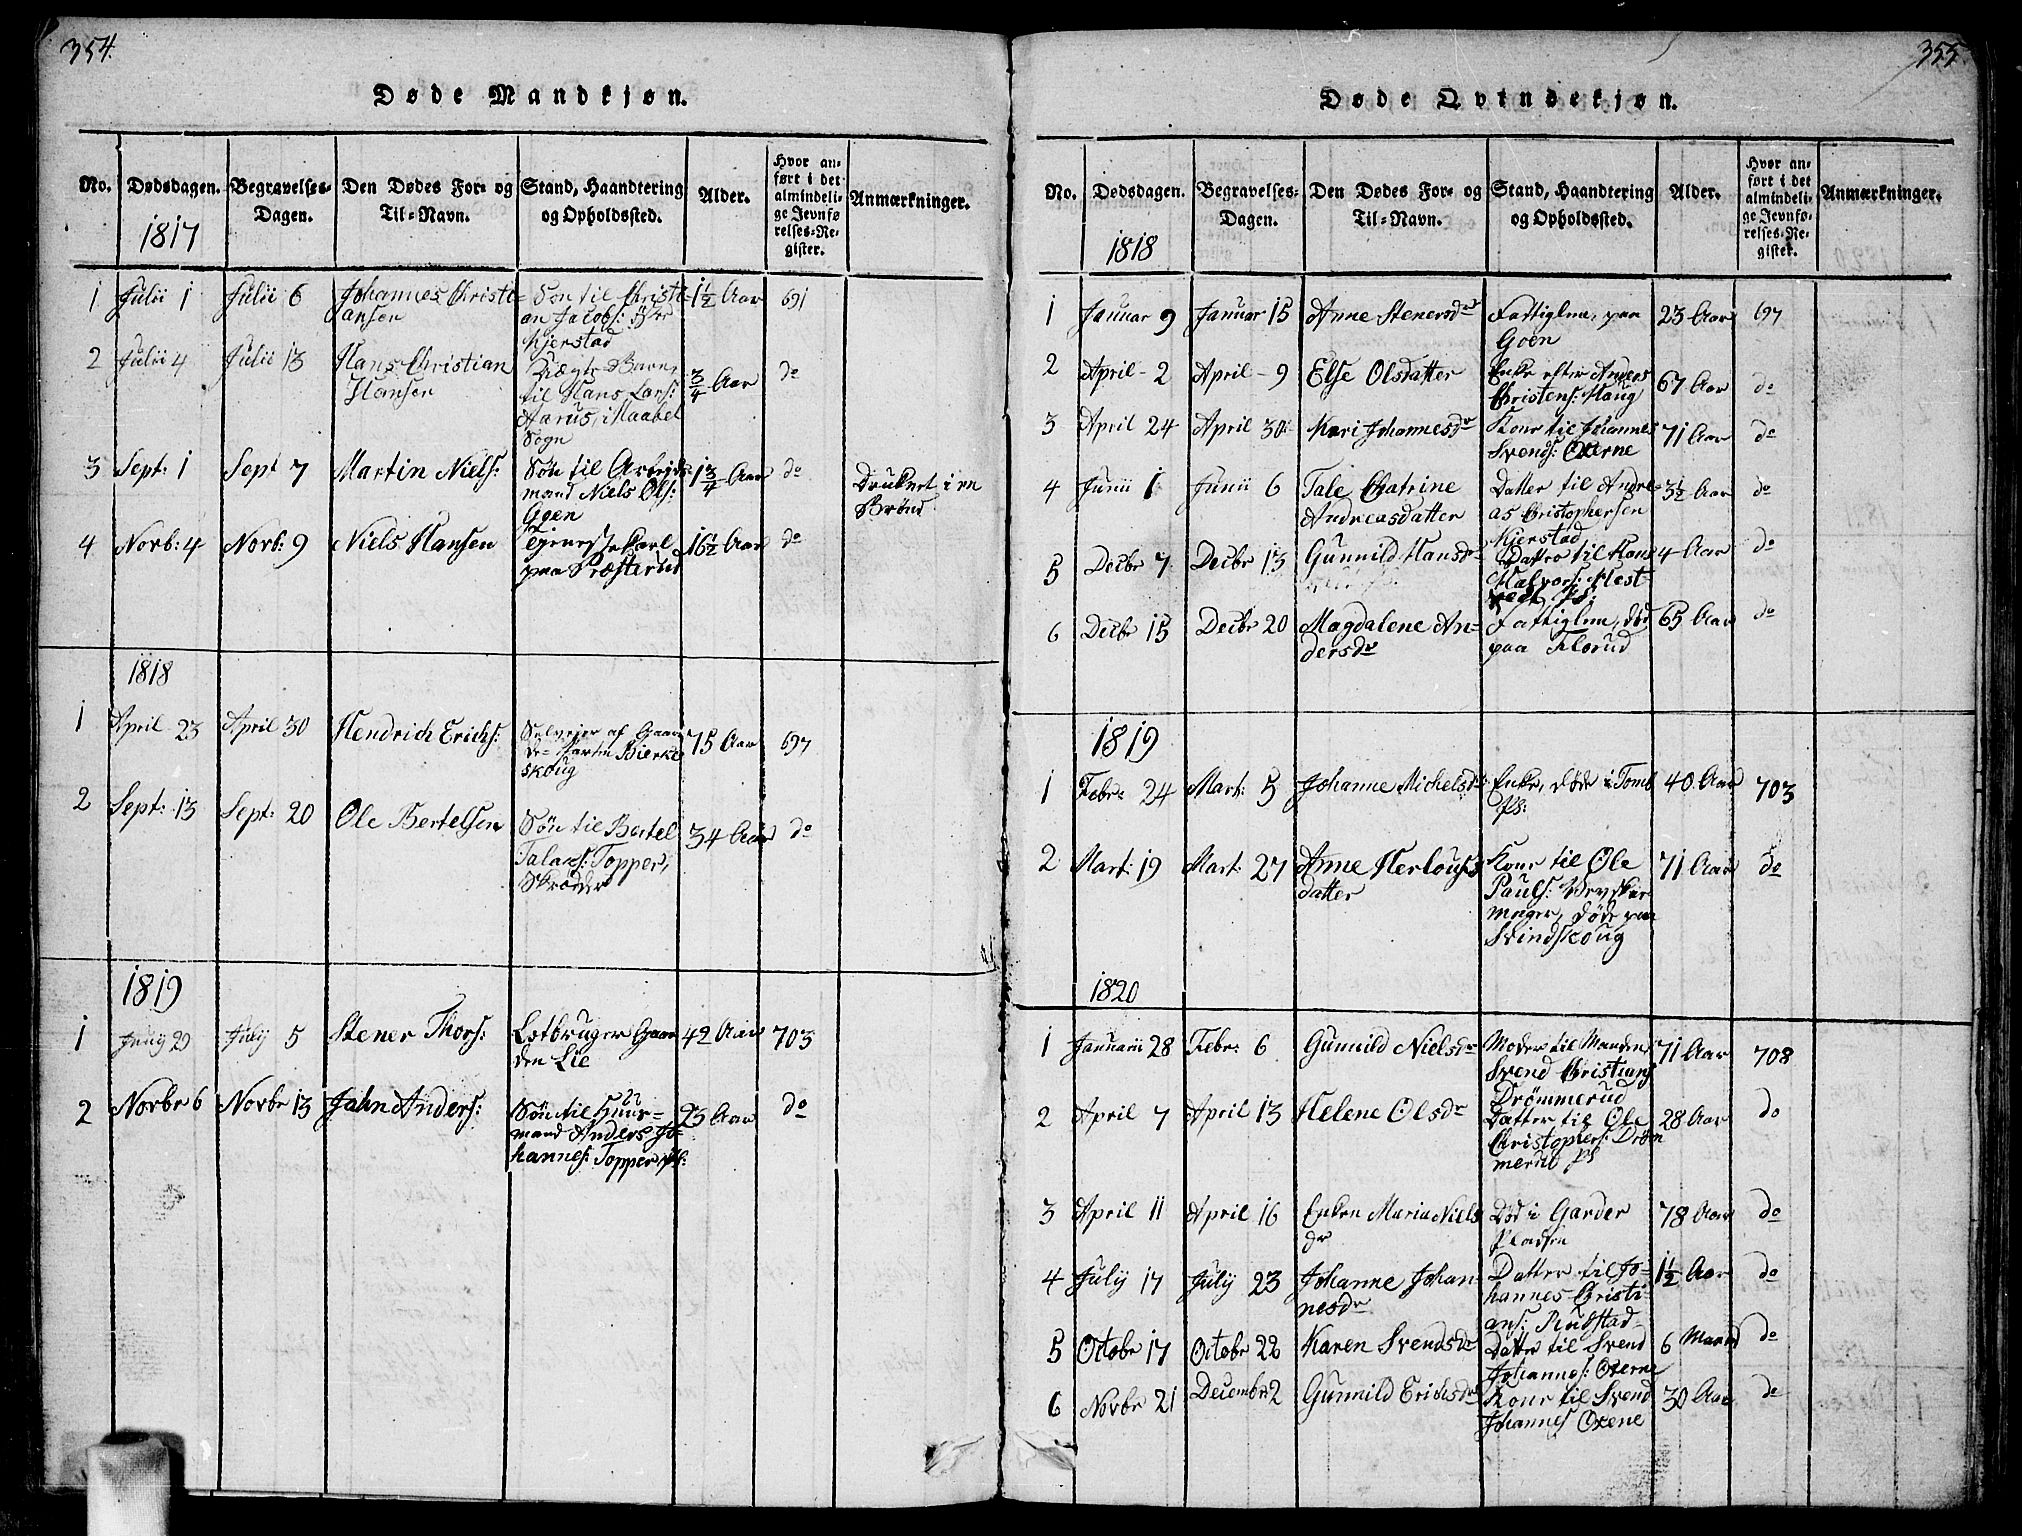 354.
Døde Mandkjøn.
No. Dødsdagen. Begravelses-Dagen. Den Dødes For- og Til-Navn. Stand, Haandtering og Opholdssted. Alder. Hvor anført i det almindelige Jevnførelses-Register. Anmærkninger.
1817
1 Julii 1 Julii 6 Johannes Christi= Søn til Christi= 1½ Aar 691
ansen an Jacobs:
Kjerstad
2 Julii 4 Julii 13 Hans Christian Barn ¾ Aar do
Hansen til Hans Lars:
Aarus, i Haabøl
Sogn
3 Sept: 1 Sept 7 Martin Niels: Søn til Arbeids= 1¾ Aar do Druknet i en
mand Niels Ols: Brønd
Goen
4 Norb: 4 Norb: 9 Niels Hansen Tjenestekarl 16½ Aar do
paa Præsterud
1818
1 April 23 April 30 Hendrich Erichs: Selveier af Gaar= 75 Aar 697
de= Parten Bierke
skoug
2 Sept: 13 Sept: 20 Ole Bertelsen Søn til Bertel 34 Aar do
Talaks: Topper,
Skrædder
1819
1 Juny 29 July 5 Stener Thors: Lotbruger Gaar 42 Aar 703
den Lie
2 Norbr 6 Norbr 13 Jahn Anders: Søn til Huus= 23 Aar do
mand Anders Jo=
hannes: Topper Ps:
355.
Døde Qvindekjøn.
No. Dødsdagen. Begravelses-Dagen. Den Dødes For- og Til-Navn. Stand, Haandtering og Opholdssted. Alder. Hvor anført i det almindelige Jevnførelses-Register. Anmærkninger.
1818
1 Januar 9 Januar 15 Anne Stenersdr Fattiglem, paa 23 Aar 697
Goen
2 April - 2 April - 9 Else Olsdatter Enke efter Anders 67 Aar do
Christens: Haug
3 April 24 April 30 Kari Johannesdr Kone til Johannes 71 Aar do
Svends: Oxerne
4 Junii 1 Junii 6 Tale Chatrine Datter til Andre= 3½ Aar do
Andreasdatter as Christophersen
Kjerstad
5 Decbr 7 Decbr 13 Gunnild Hansdr Datter til Hans 4 Aar do
Halvors: Hest
vedt Ps:
6 Decbr 15 Decbr 20 Magdalene An= Fattiglem, død 65 Aar do
dersdr paa Florud
1819
1 Febr: 24 Mart: 5 Johanne Michelsdr: Enke, døde i Tomb 40 Aar 703
Ps:
2 Mart: 19 Mart: 27 Anne Herloufs Kone til Ole 71 Aar do
datter Pauls:
mager, døde paa
Svindskoug
1820
1 Januarii 28 Febr: 6 Gunnild Nielsdr Moder til Manden 71 Aar 708
Svend Christians
Drömmerud
2 April 7 April 13 Helene Olsdr Datter til Ole 28 Aar do
Christophers: Dröm
merud Ps
3 April 11 April 16 Enken Maria Niels Død i Garder 78 Aar do
dr Pladsen
4 July 17 July 23 Johanne Johan Datter til Jo= 1½ Aar do
nesdr hannes Christi=
ans: Rudstad
5 Octobr 17 Octobr 22 Karen Svendsdr Datter til Svend 6 Maaned do
Johannes: Oxerne
6 Novbr 21 Decembr 2 Gunnild Erichsdr Kone til Svend 30 Aar do
Johannes Oxene